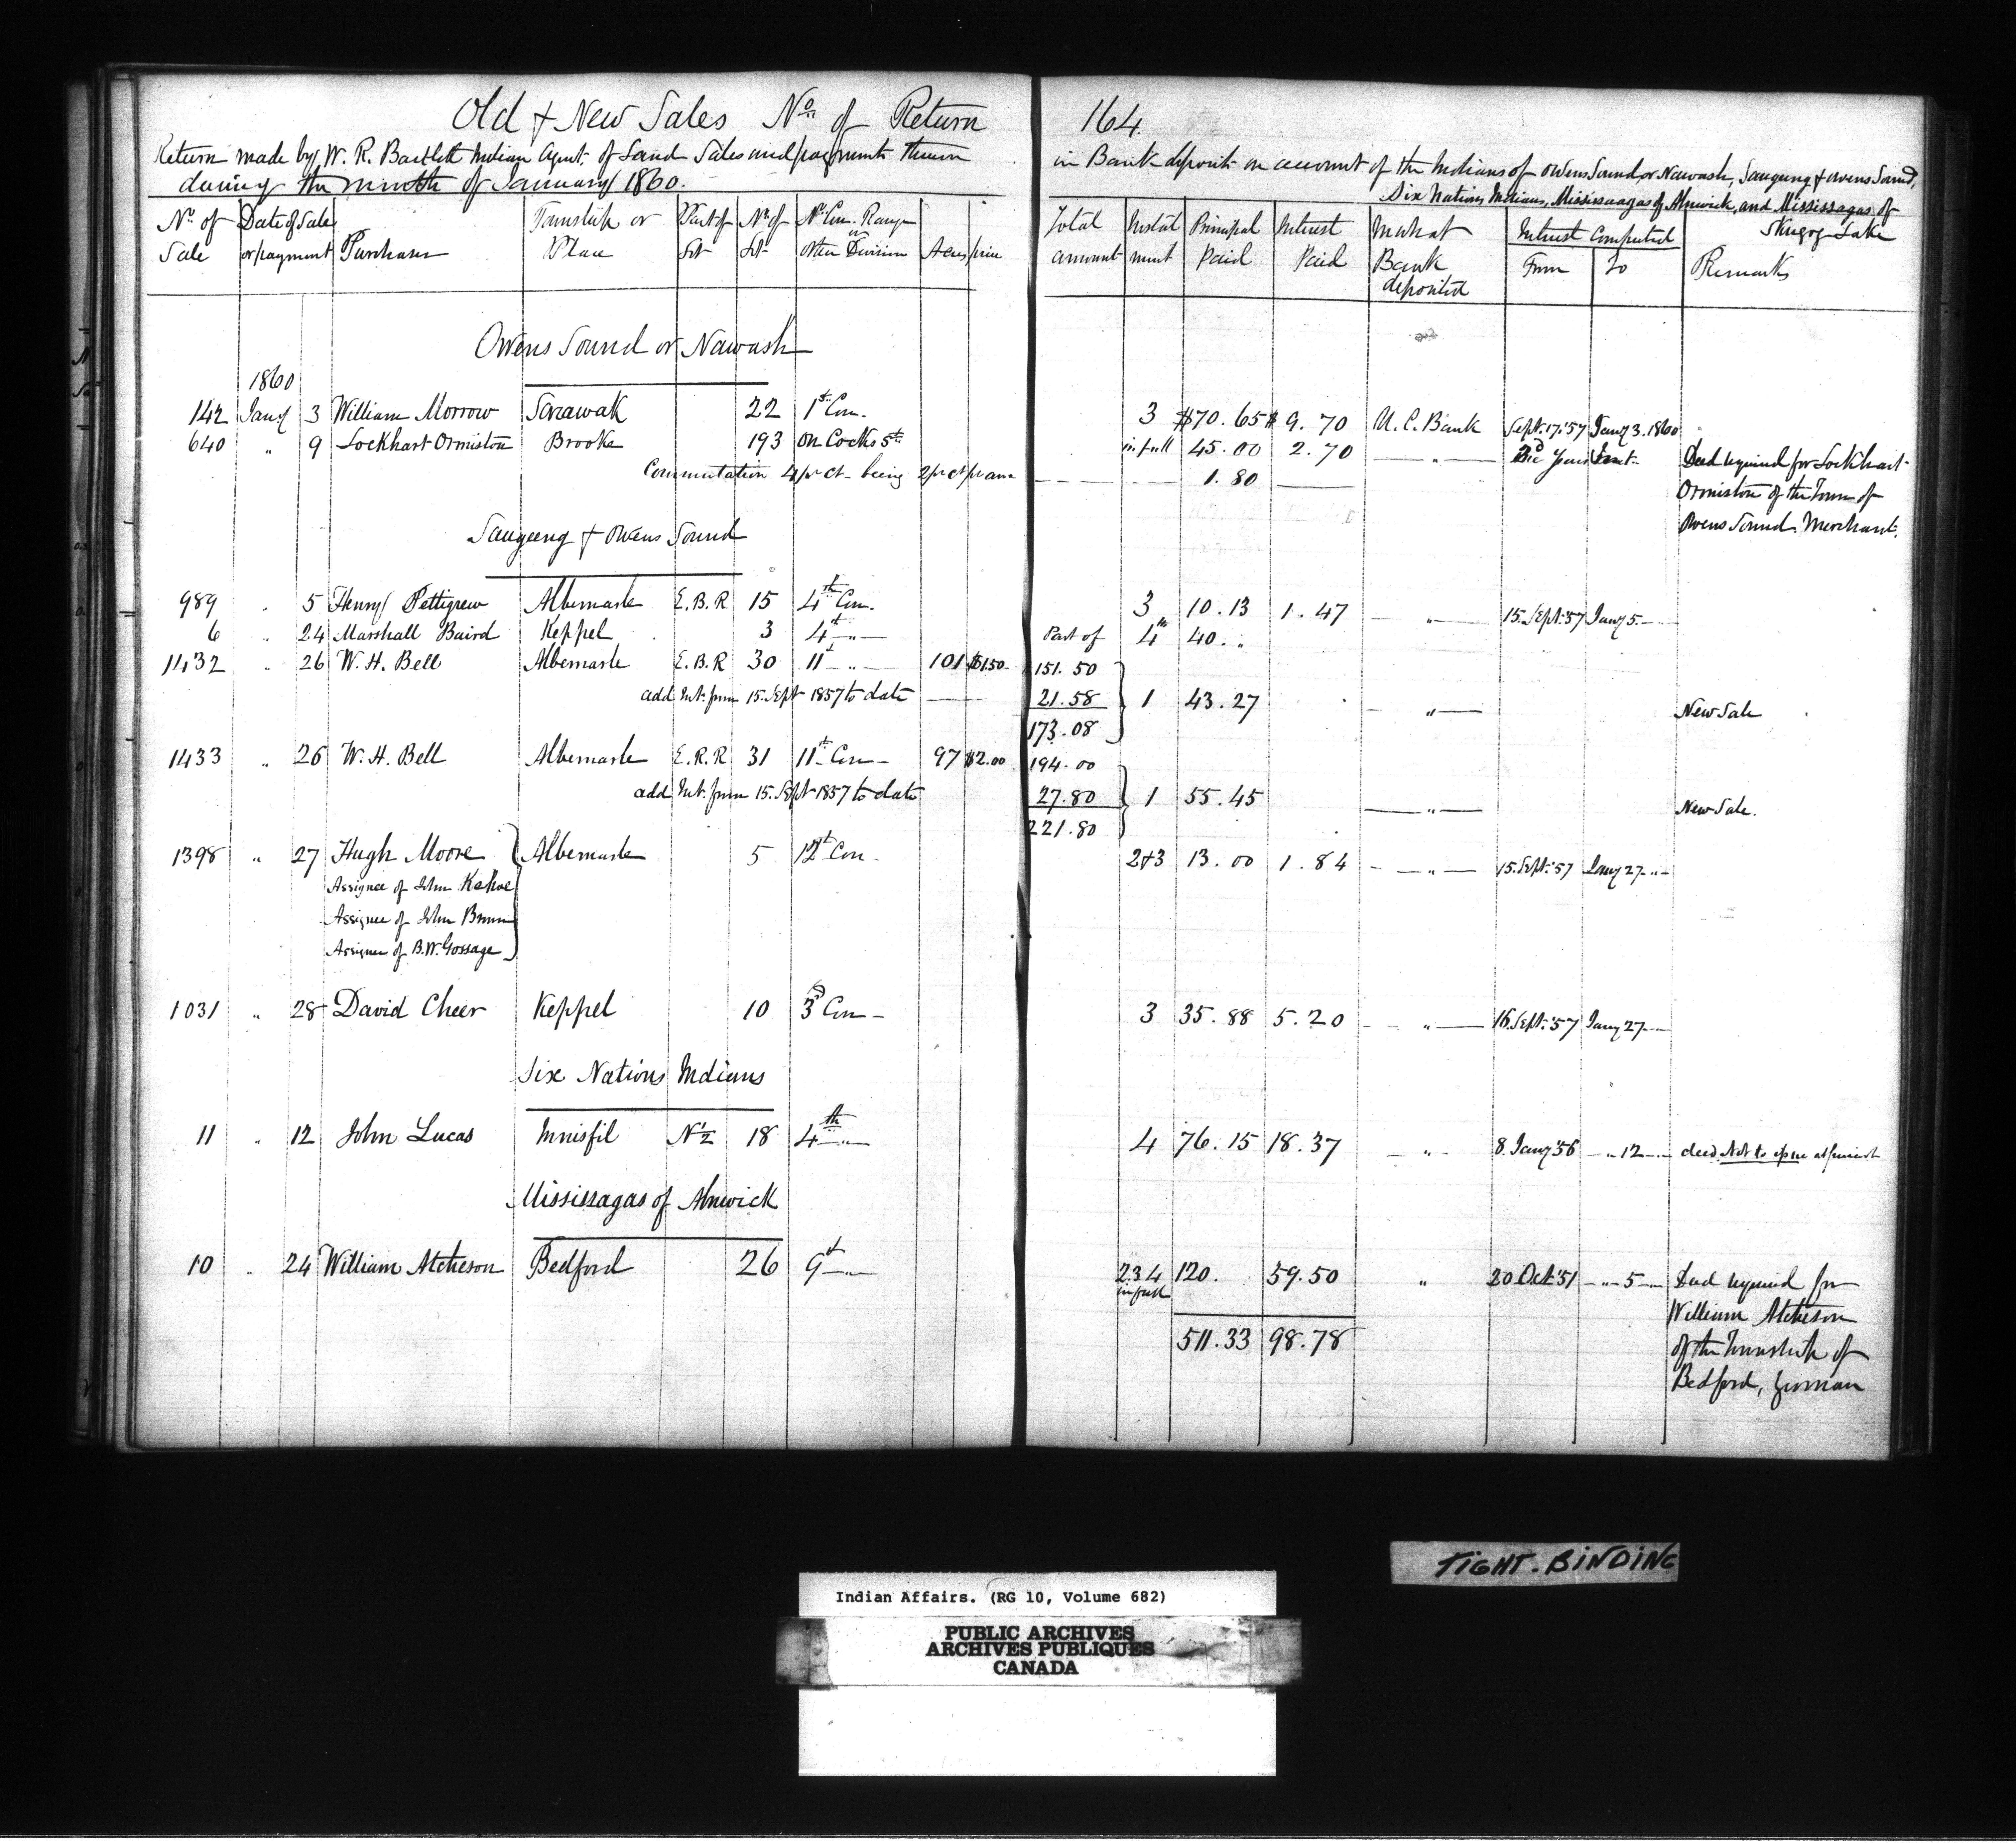 Old & New Sales No. of Return 164.
Return made by W. R. Bartlett Indian Agent of Land Sales and payments thereon in Bank deposit on account of the Indians of Owens Sound, or Nawash, Saugeeng & Owens Sound,
during the month of January 1860. Six Nations Indians, Mississaagas of Alnwick, and Mississagas of
Skugog Lake
No. of Sale Date of Sale or payment Purchaser Township or Place Part of Lot No. of Lot No. Con. Range or other Division Acres price Total amount Instalment Principal Paid Interest Paid In what Bank deposited Interest Computed From To Remarks
Owens Sound or Nawash
1860
142 Jany 3 William Morrow Sarawak 22 1st Con. 3 $70.65 $9.70 U. C. Bank Sept. 17. '57 Jany 3. 1860
640 " 9 Lockhart Ormiston Brooke 193 on Cocks St. in full 45.00 2.70 " Deed required for Lockhart
Commutation 4 pr ct being 2 pr ct pr ann 1.80 Ormiston of the Town of
Owens Sound Merchant.
Saugeeng & Owens Sound
989 " 5 Henry Pettigrew Albemarle E.B.R 15 4th Con. 3 10.13 1.47 " 15. Sept. '57 Jany 5
6 " 24 Marshall Baird Keppel 3 4th " Part of 4th 40. "
1432 " 26 W. H. Bell Albemarle E.B.R 30 11th " 101 $1.50 151.50
add Int. from 15. Sept 1857 to date 21.58 1 43.27 " New Sale
173.08
1433 " 26 W. H. Bell Albemarle E.R.R 31 11th Con 97 $2.00 194.00
add Int. from 15. Sept 1857 to date 27.80 1 55.45 " New Sale.
221.80
1398 " 27 Hugh Moore Albemarle 5 12th Con. 2&3 13.00 1.84 " 15. Sept. '57 Jany 27 "
Assignee of John Kehoe
Assignee of John Brown
Assignee of B.W. Gossage
1031 " 28 David Cheer Keppel 10 3d Con 3 35.88 5.20 " 16. Sept. '57 Jany 27
Six Nations Indians
11 " 12 John Lucas Innisfil N½ 18 4th " 4 76.15 18.37 " 8. Jany '56 " 12 " deed Not to issue at present
Mississagas of Alnwick
10 " 24 William Atcheson Bedford 26 9th " 2.3.4 in full 120. 59.50 " 20 Oct. '51 " 5 " Deed required for
William Atcheson
511.33 98.78 of the Township of
Bedford, Yeoman
TIGHT-BINDING
Indian Affairs. (RG 10, Volume 682)
PUBLIC ARCHIVES
ARCHIVES PUBLIQUES
CANADA